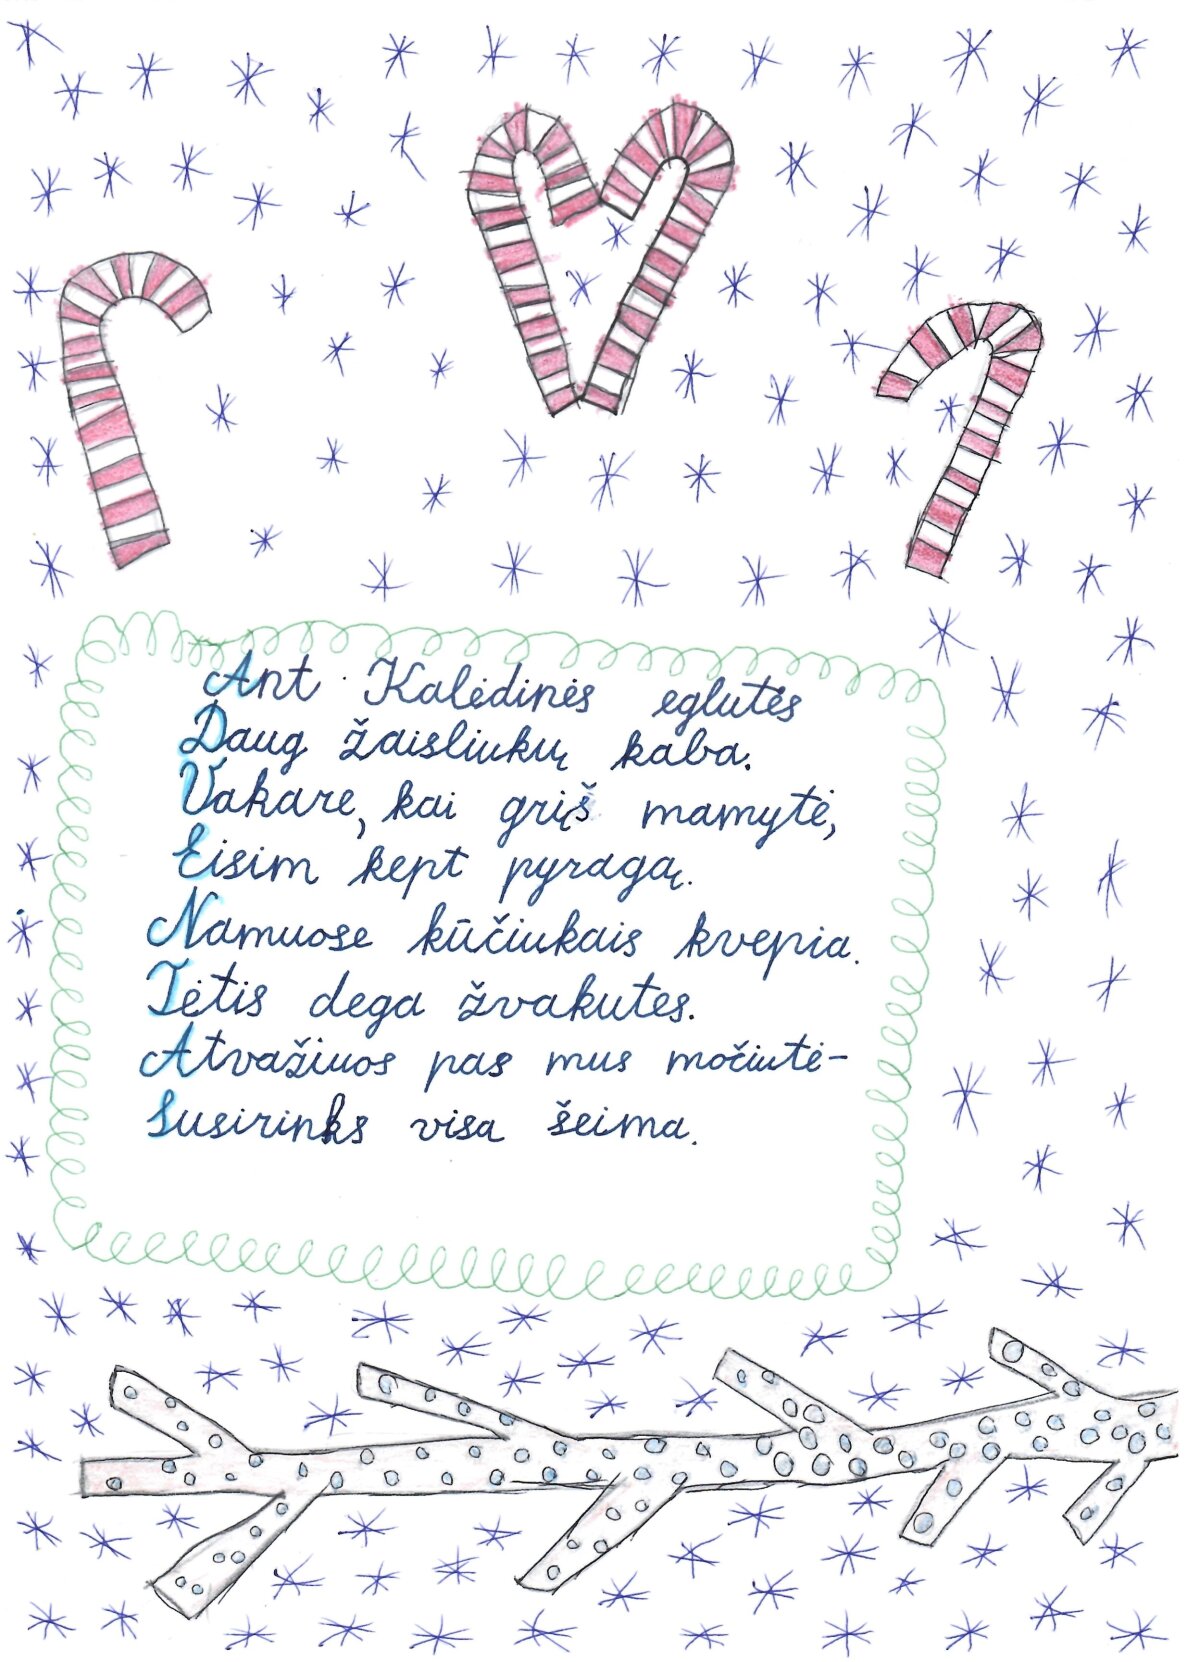 Ant Kalėdinės eglutės
Daug žaisliukų kaba.
Vakare, kai grįš mamytė,
Eisim kept pyragą.
Namuose kūčiukais kvepia.
Tėtis dega žvakutes.
Atvažiuos pas mus močiutė-
Susirinks visa šeima.